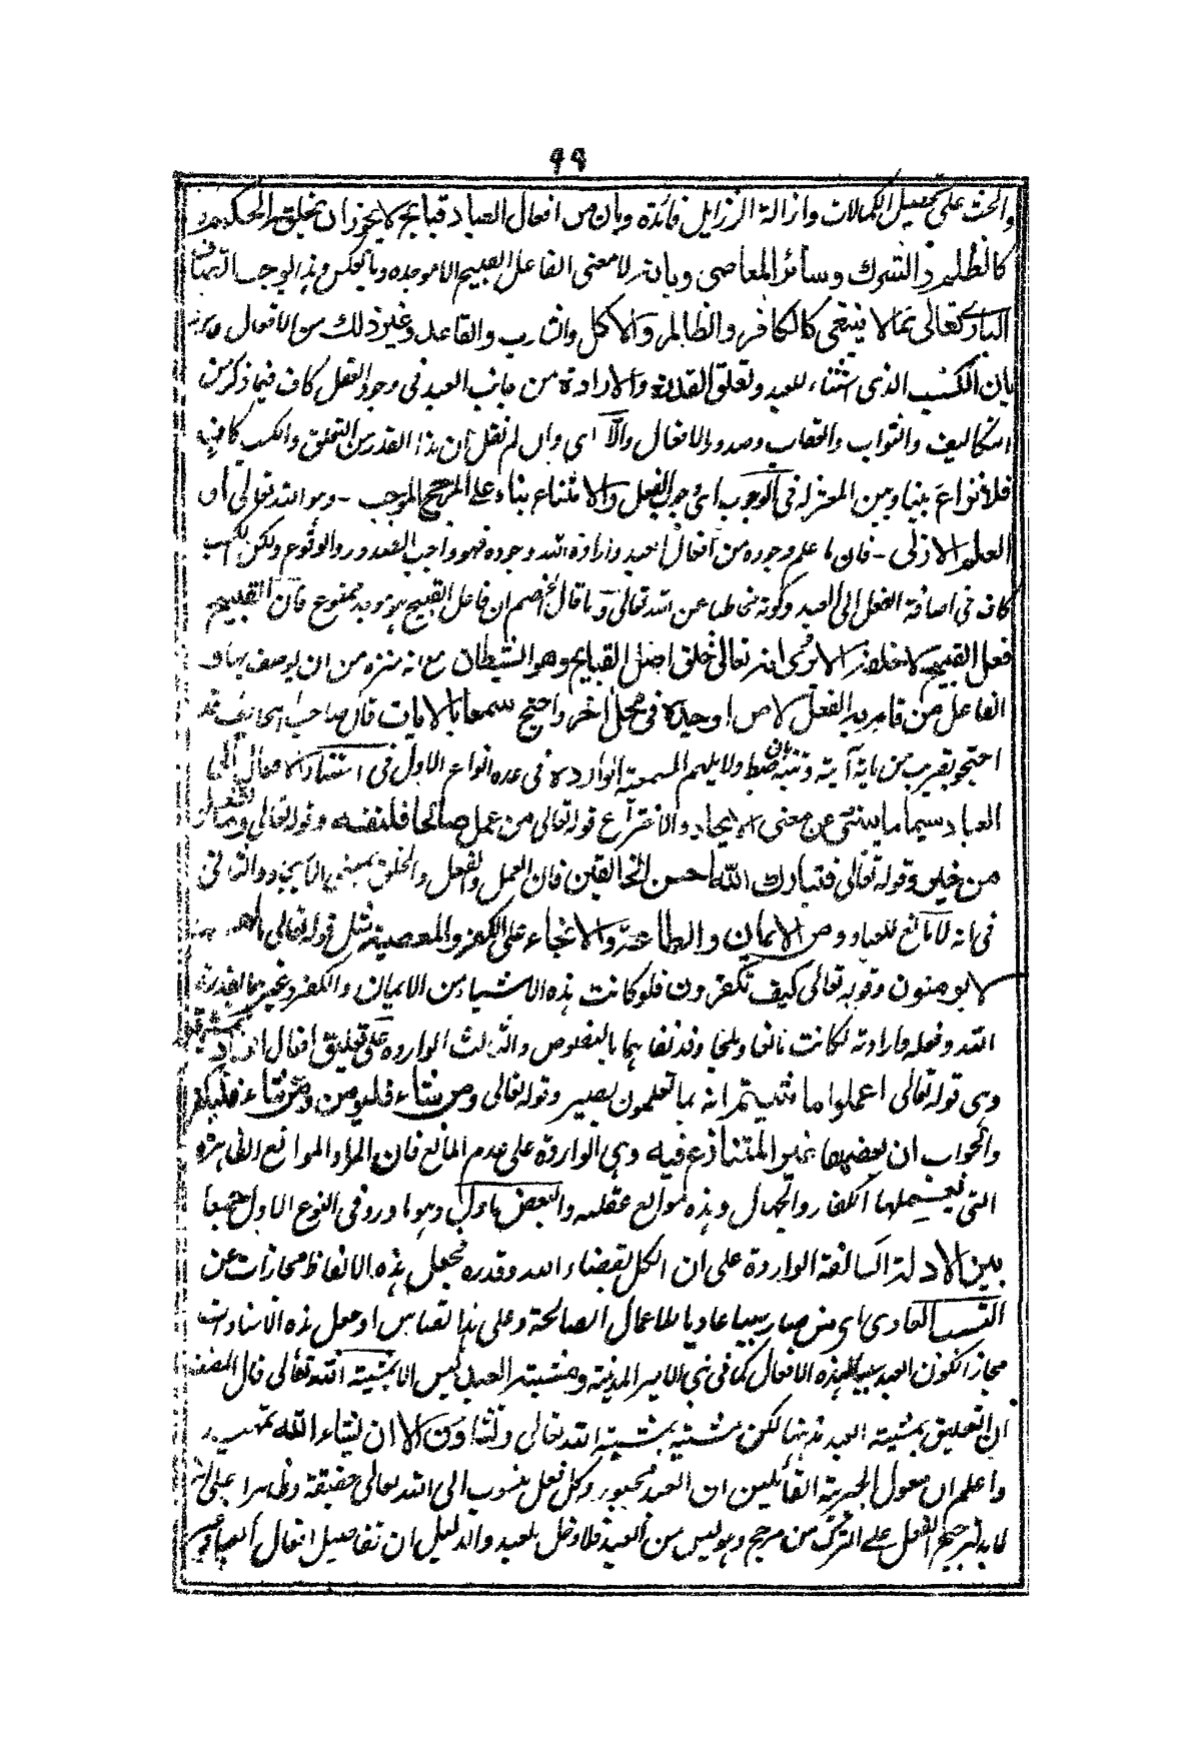 ٩٩
والحث على تحصيل الكمالات وازالة الرزايل فائدة وبان من افعال العباد قبايح لا يجوز ان يخلق الحكيم
كالظلم والشرك وسائر المعاصى وبانه لا معنى الفاعل القبيح الا موجده وبالعكس وهذا يوجب اتصاف
البارى تعالى بما لا ينبغى كالكافر والظالم والاكل والشارب والقاعد وغير ذلك من الافعال
بان الكسب الذى للعبد وتعلق القدرة والارادة من جانب العبد فى وجود الفعل كاف فيما ذكر من
التكاليف والثواب والعقاب وصدور الافعال والا اى وان لم نقل ان هذا القدر من التعلق والكسب كافيا
فلا نزاع بيننا وبين المعتزلة فى الوجوب اى وجوب الفعل والامتناع بناء على المرجح الموجب - وهو ارادته تعالى او
العلم الازلى - فان ما علم وجوده من افعال العبد وارادة الله وجوده فهو واجب الصدور والوقوع ولكن الكسب
كاف فى اضافة الفعل الى العبد وكونه مخاطبا عن الله تعالى وما قال الخصم ان فاعل القبيح هو موجده ممنوع فان القبيح
فعل القبيح لا خلقه الا ترى انه تعالى خلق اصل القبايح وهو الشيطان مع انه منزه من ان يوصف بها و
الفاعل من قام به الفعل لا من اوجده فى محل آخر واحتج سمعا بالايات قال صاحب الصحائف قد
احتج بقريب من ماية آية وتنبيه بان ضبط دلايلهم السمعية الواردة فى عدة انواع الاول فى اسناد الافعال الى
العباد سيما ما ينبئ عن معنى الايجاد والاختراع قوله تعالى من عمل صالحا فلنفسه وقوله تعالى وما تفعلوا
من خير وقوله تعالى فتبارك الله احسن الخالقين فان العمل والفعل والخلق بمعنى الايجاد والثانى
فى انه لا مانع للعباد من الايمان والطاعة والالجاء على الكفر والمعصية مثل قوله تعالى
لا يومنون وقوله تعالى كيف تكفرون فلو كانت هذه الاشياء من الايمان والكفر وغيرهما بقدرة
الله وفعله وارادته لكانت مانعا وملجا وقد نفاهما بالنصوص والثالث الواردة على تعليق افعال
وهى قوله تعالى اعملوا ما شيتم انه بما تعلمون بصير وقوله تعالى ومن شاء فليومن ومن شاء فليكفر
والجواب ان بعضها غير المتنازع فيه وهى الواردة على عدم المانع فان المراد الموانع الظاهرة
التى الكفار والجهال وهذه موانع عقليه والبعض ماول وهو ما ورد فى النوع الاول جمعا
بين الادلة السالفة الواردة على ان الكل بقضاء الله وقدره فجعل هذه الالفاظ مجازات عن
التسبب العادى اى من صار سببا عاديا للاعمال الصالحة وعلى هذا القياس او جعل هذه الاسنادات
مجازا لكون العبد سببا لهذه الافعال كما فى بنى الامير المدينة ومشيته العبد ليس الا بمشية الله تعالى قال المصنف
ان تعليق بمشيته العبد مذهبنا لكن مشيته بمشيته الله تعالى وتشاؤن الا ان يشاء الله
واعلم ان معول الجبرية القائلين ان العبد مجبور وكل فعل منسوب الى الله تعالى حقيقة وظاهرا على انه
لا بد لترجيح الفعل على الترك من مرجح وهو ليس من العبد فلا دخل للعبد والدليل ان تفاصيل افعال العباد